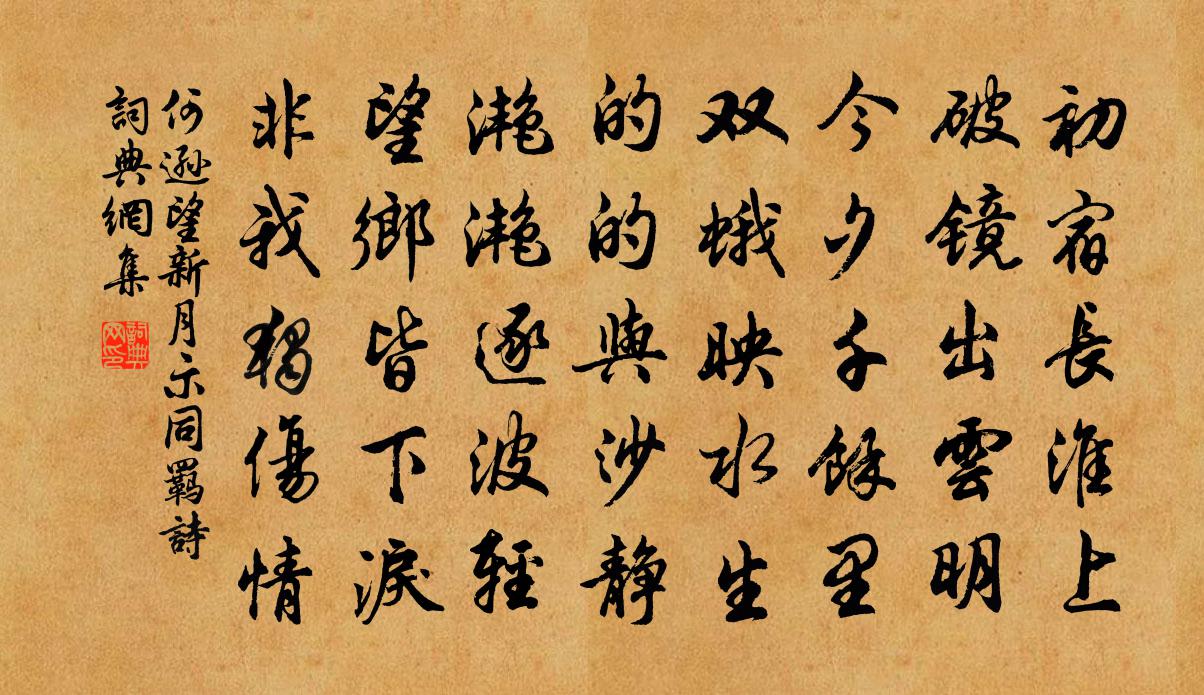 初宿長淮上
破镜出雲明
今夕千餘里
双蛾映水生
的的與沙静
灔灔逐波輕
望鄉皆下淚
非我獨傷情
何遜望新月示同羁詩
詞典網集
詞典网印